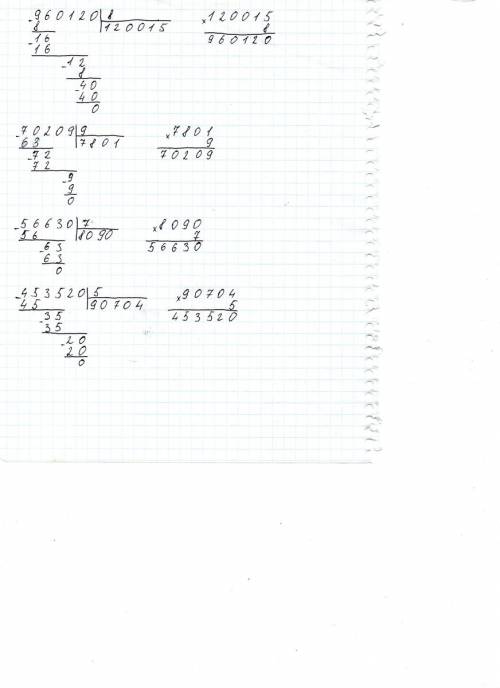 -960120 8 ×120015
8 120015 8
-16 960120
16
-12
8
-40
40
0
-70209 9 ×7801
63 7801 9
-72 70209
72
-9
9
0
-56630 7 ×8090
56 8090 7
-63 56630
63
0
-453520 5 ×90704
45 90704 5
-35 453520
35
-20
20
0